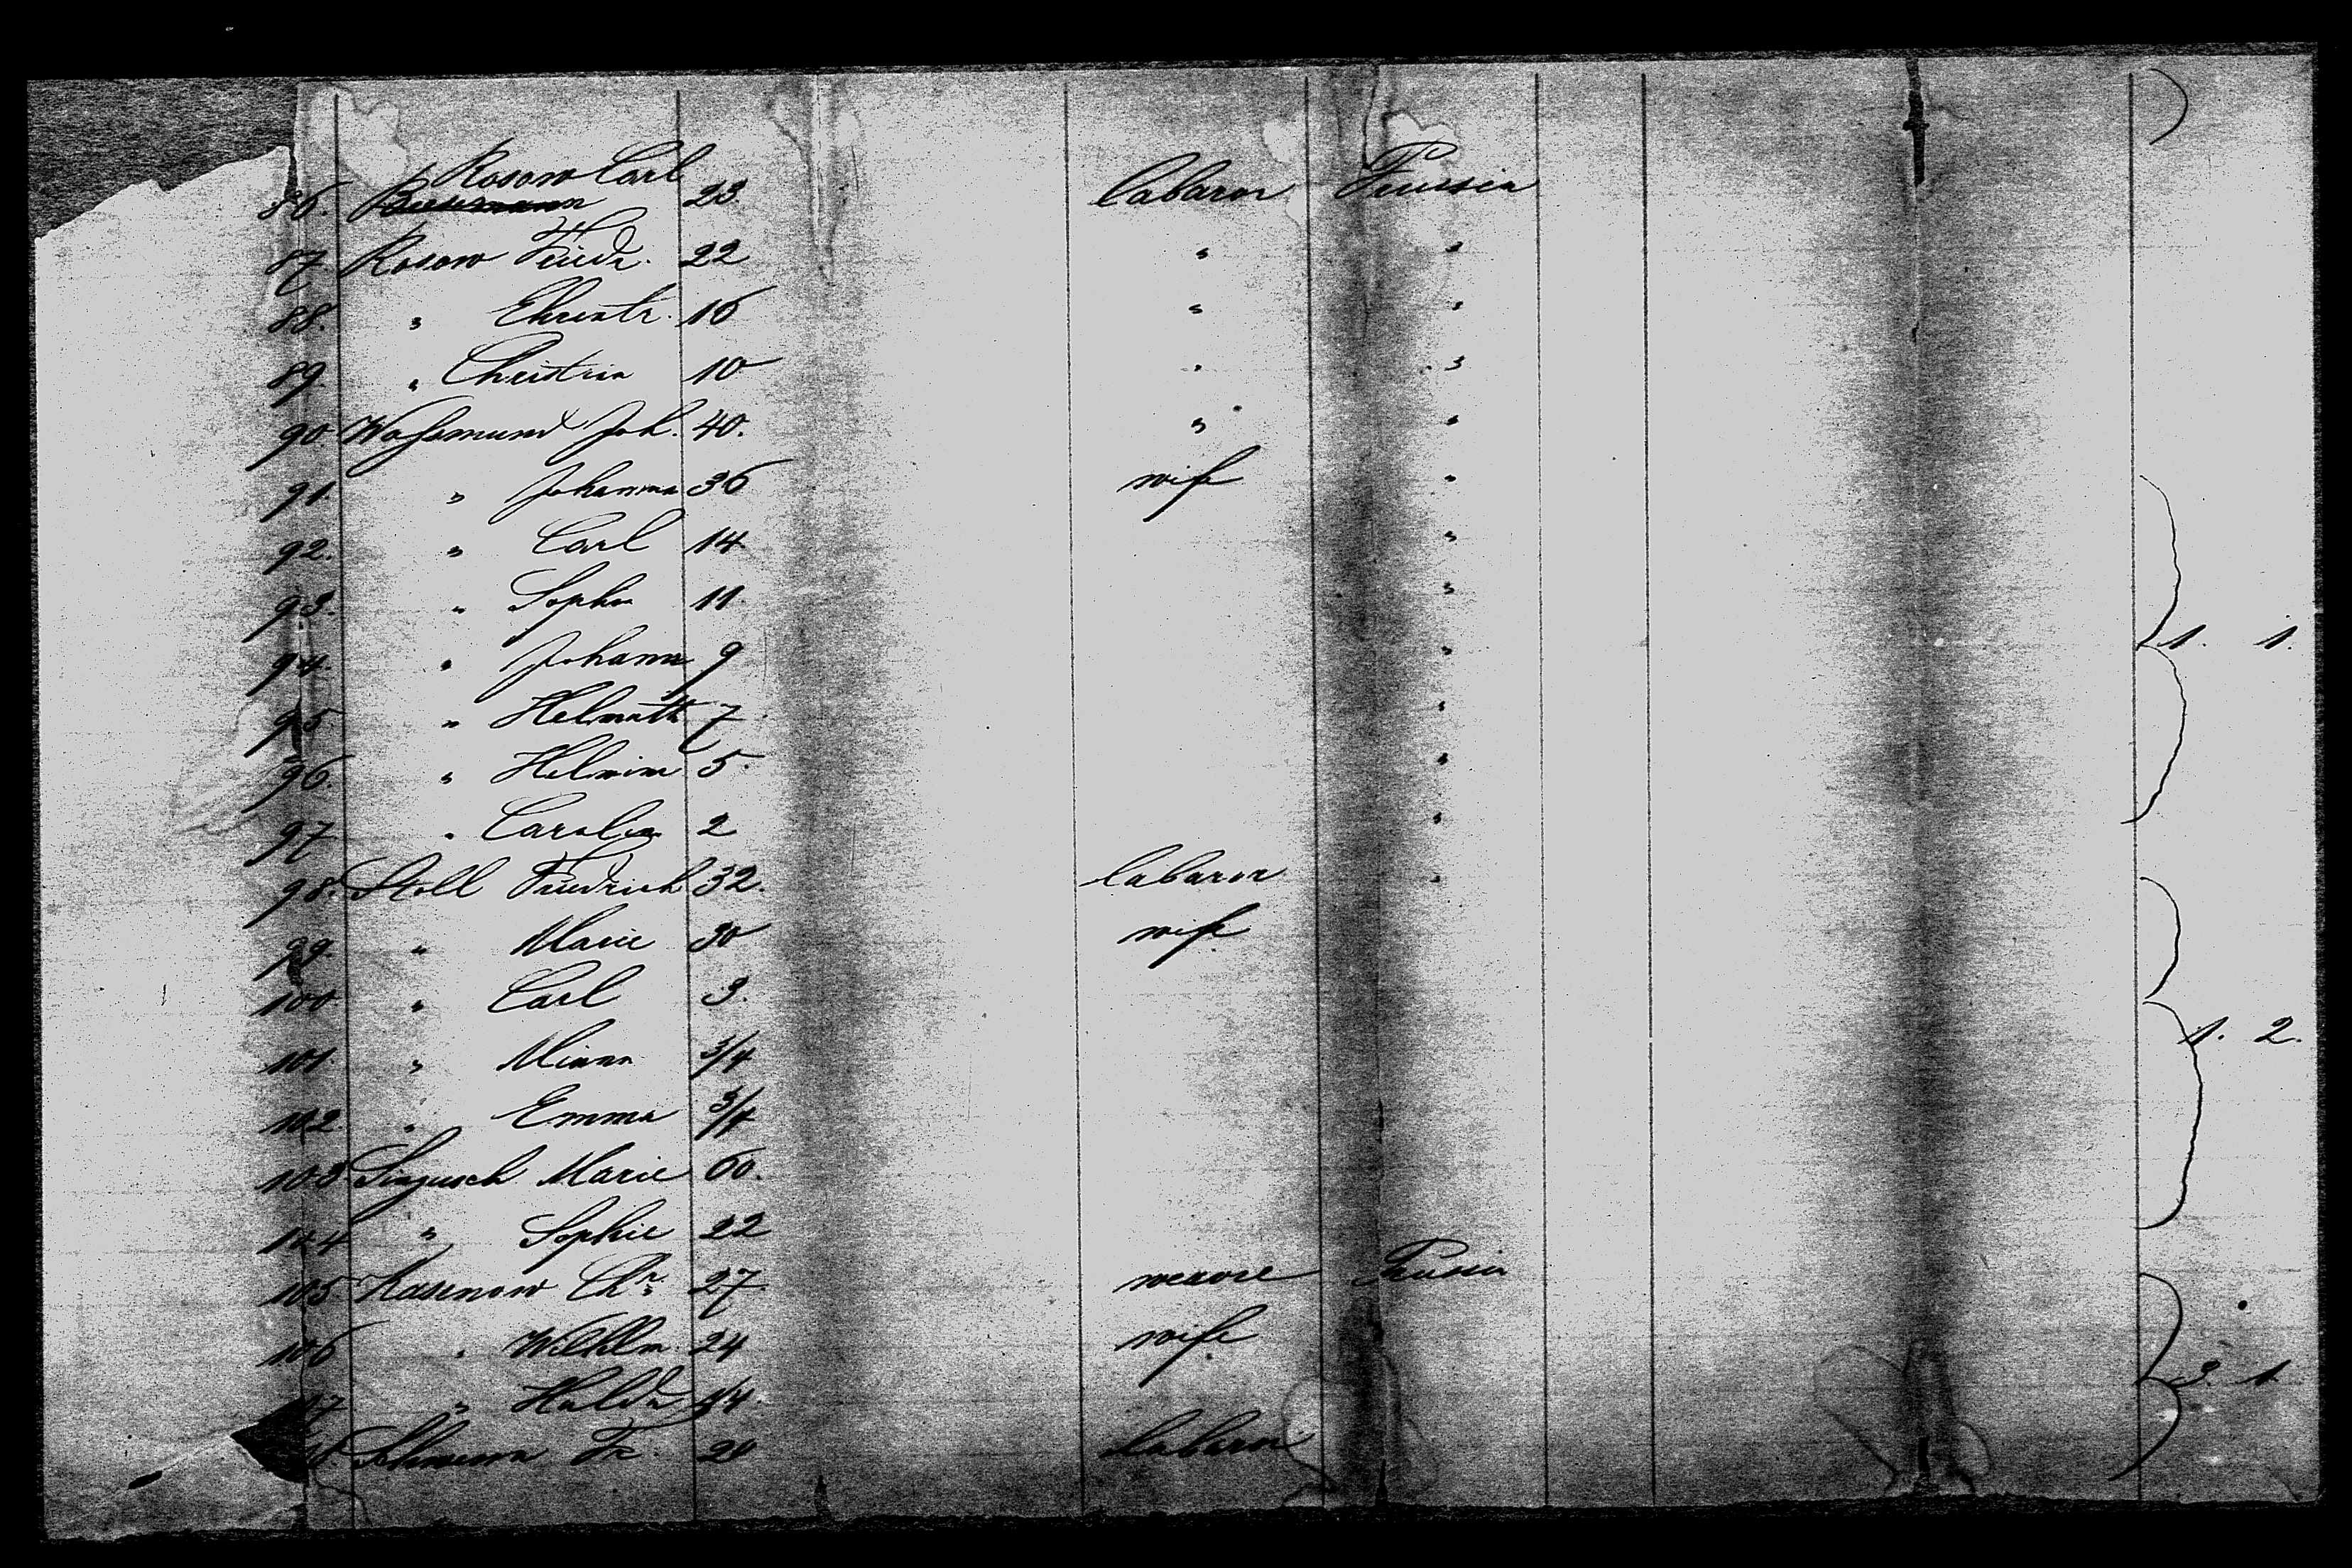 86. Rosow Carl 23 labaror Prussia
87. Rosow Friedr. 22 " "
88. " Ehrentr. 16 " "
89. " Christian 10 " "
90. Waßmund Joh. 40. " "
91. " Johanna 36 wife "
92. " Carl 14 "
93. " Sophie 11 "
94. " Johann 9 "
95. " Helmuth 7 "
96. " 5 "
97 " Carolin 2 "
98. Stoll Friedrich 32. labaror "
99. " Marie 30 wife
100 " Carl 3.
101 " Minna 3/4
102 " Emma 3/4
103 Marie 60.
104 " Sophie 22
105 Rosenow Chr. 27 Prussia
106 " Wilhlm. 24 wife
" Hulda
Fr. 20 labaror
1. 1.
1. 2.
3. 1.